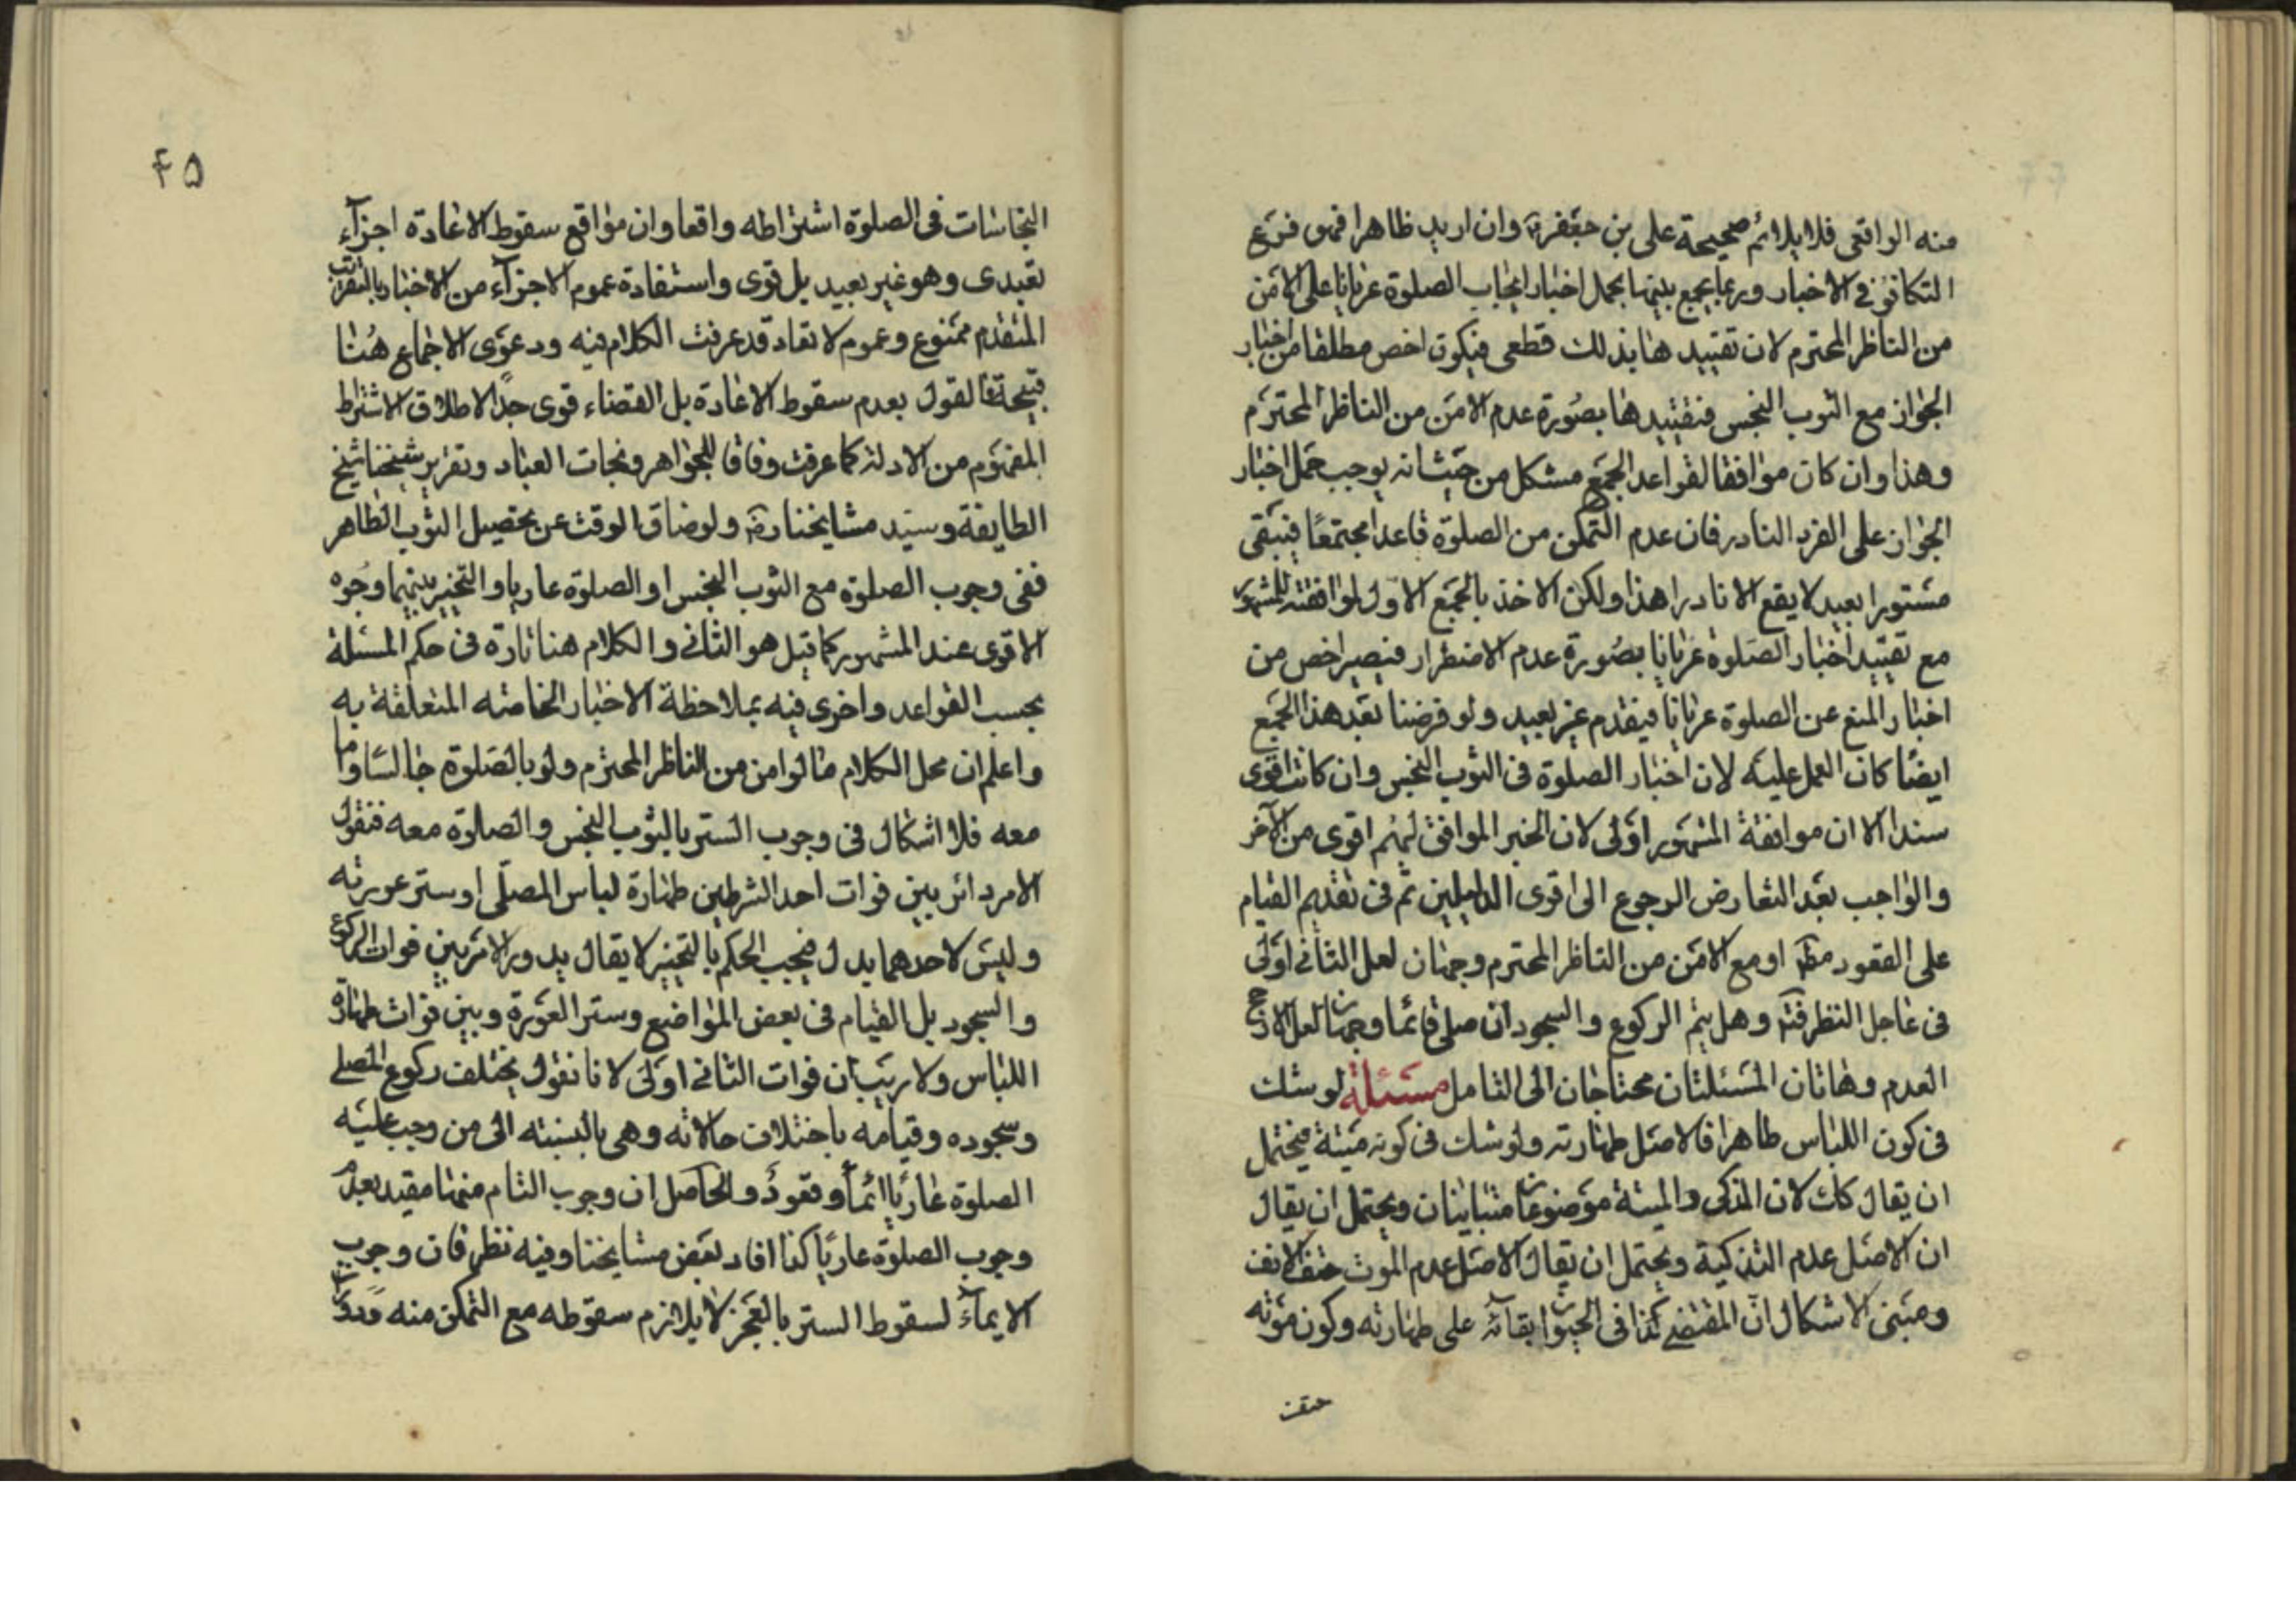 منه الواقعى فلا يلائم صحيحة على بن جعفر وان اريد ظاهرا فهى فرع
التكافؤ فى الاخبار وربما يجمع بينها بحمل اخبار ايجاب الصلوة عريانا على الامن
من الناظر المحترم لان تقييدها بذلك قطعى فيكون اخص مطلقا من اخبار
الجواز مع الثوب النجس فنقييدها بصورة عدم الامن من الناظر المحترم
وهذا وان كان موافقا لقواعد الجمع مشكل من حيث انه يوجب حمل اخبار
الجواز على الفرد النادر فان عدم التمكن من الصلوة قاعدا مجتمعا فيبقى
مستورا بعيد لا يقع الا نادرا هذا ولكن الاخذ بالجمع الاول لموافقته للمشهور
مع تقييد اخبار الصلوة عريانا بصورة عدم الاضطرار فيصير اخص من
اخبار المنع عن الصلوة عريانا فيقدم غير بعيد ولو فرضنا بعد هذا الجمع
ايضا كان العمل عليه لان اخبار الصلوة فى الثوب النجس وان كانت اقوى
سندا الا ان موافقة المشهور اولى لان الخبر الموافق لهم اقوى من الآخر
والواجب بعد التعارض الرجوع الى اقوى الدليلين ثم فى تقديم القيام
على القعود مطم او مع الامن من الناظر المحترم وجهان لعل الثانى اولى
فى عاجل النظر فتم وهل يتم الركوع والسجود ان صلى قائما وجهان لعل الارجح
العدم وهاتان المسئلتان محتاجان الى التامل مسئلة لو شك
فى كون اللباس طاهرا فالاصل طهارته ولو شك فى كونه ميتة فيحتمل
ان يقال كك لان المذكى والميتة موضوعان متباينان ويحتمل ان يقال
ان الاصل عدم التذكية ويحتمل ان يقال الاصل عدم الموت حتف الانف
ومبنى الاشكال ان المقتضى كذا فى الحيوان بقائه على طهارته وكون موته
حتف
۴۵
النجاسات فى الصلوة اشتراطه واقعا وان مواقع سقوط الاعادة اجزآء
تعبدى وهو غير بعيد بل قوى واستفادة عموم الاجزآء من الاخبار بالتقريب
المتقدم ممنوع وعموم لا تعاد قد عرفت الكلام فيه ودعوى الاجماع هنا
قبيحة فالقول بعدم سقوط الاعادة بل القضاء قوى جدا لاطلاق الاشتراط
المفهوم من الادلة كما عرفت وفاقا للجواهر ونجات العباد وتقرير شيخنا شيخ
الطايفة وسيد مشايخنا ره ولو ضاق الوقت عن تحصيل الثوب الطاهر
ففى وجوب الصلوة مع الثوب النجس او الصلوة عاريا والتخيير بينهما وجوه
الاقوى عند المشهور كما قيل هو الثانى والكلام هنا تارة فى حكم المسئلة
بحسب القواعد واخرى فيه بملاحظة الاخبار الخاصه المتعلقة به
واعلم ان محل الكلام ما لو امن من الناظر المحترم ولو بالصلوة جالسا وما
معه فلا اشكال فى وجوب الستر بالثوب النجس والصلوة معه فنقول
الامر دائر بين فوات احد الشرطين طهارة لباس المصلى او ستر عورته
وليس لاحدهما بدل فيجب الحكم بالتخيير لا يقال يدور الامر بين فوات الركوع
والسجود بل القيام فى بعض المواضع وستر العورة وبين فوات طهارة
اللباس ولا ريب ان فوات الثانى اولى لانا نقول يختلف ركوع المصلى
وسجوده وقيامه باختلاف حالاته وهى بالنسبته الى من وجب عليه
الصلوة عاريا ايمأ وقعود والحاصل ان وجوب التام منها مقيد بعدم
وجوب الصلوة عاريا كذا افاد بعض مشايخنا وفيه نظر فان وجوب
الايمآء لسقوط الستر بالعجز لا يلازم سقوطه مع التمكن منه